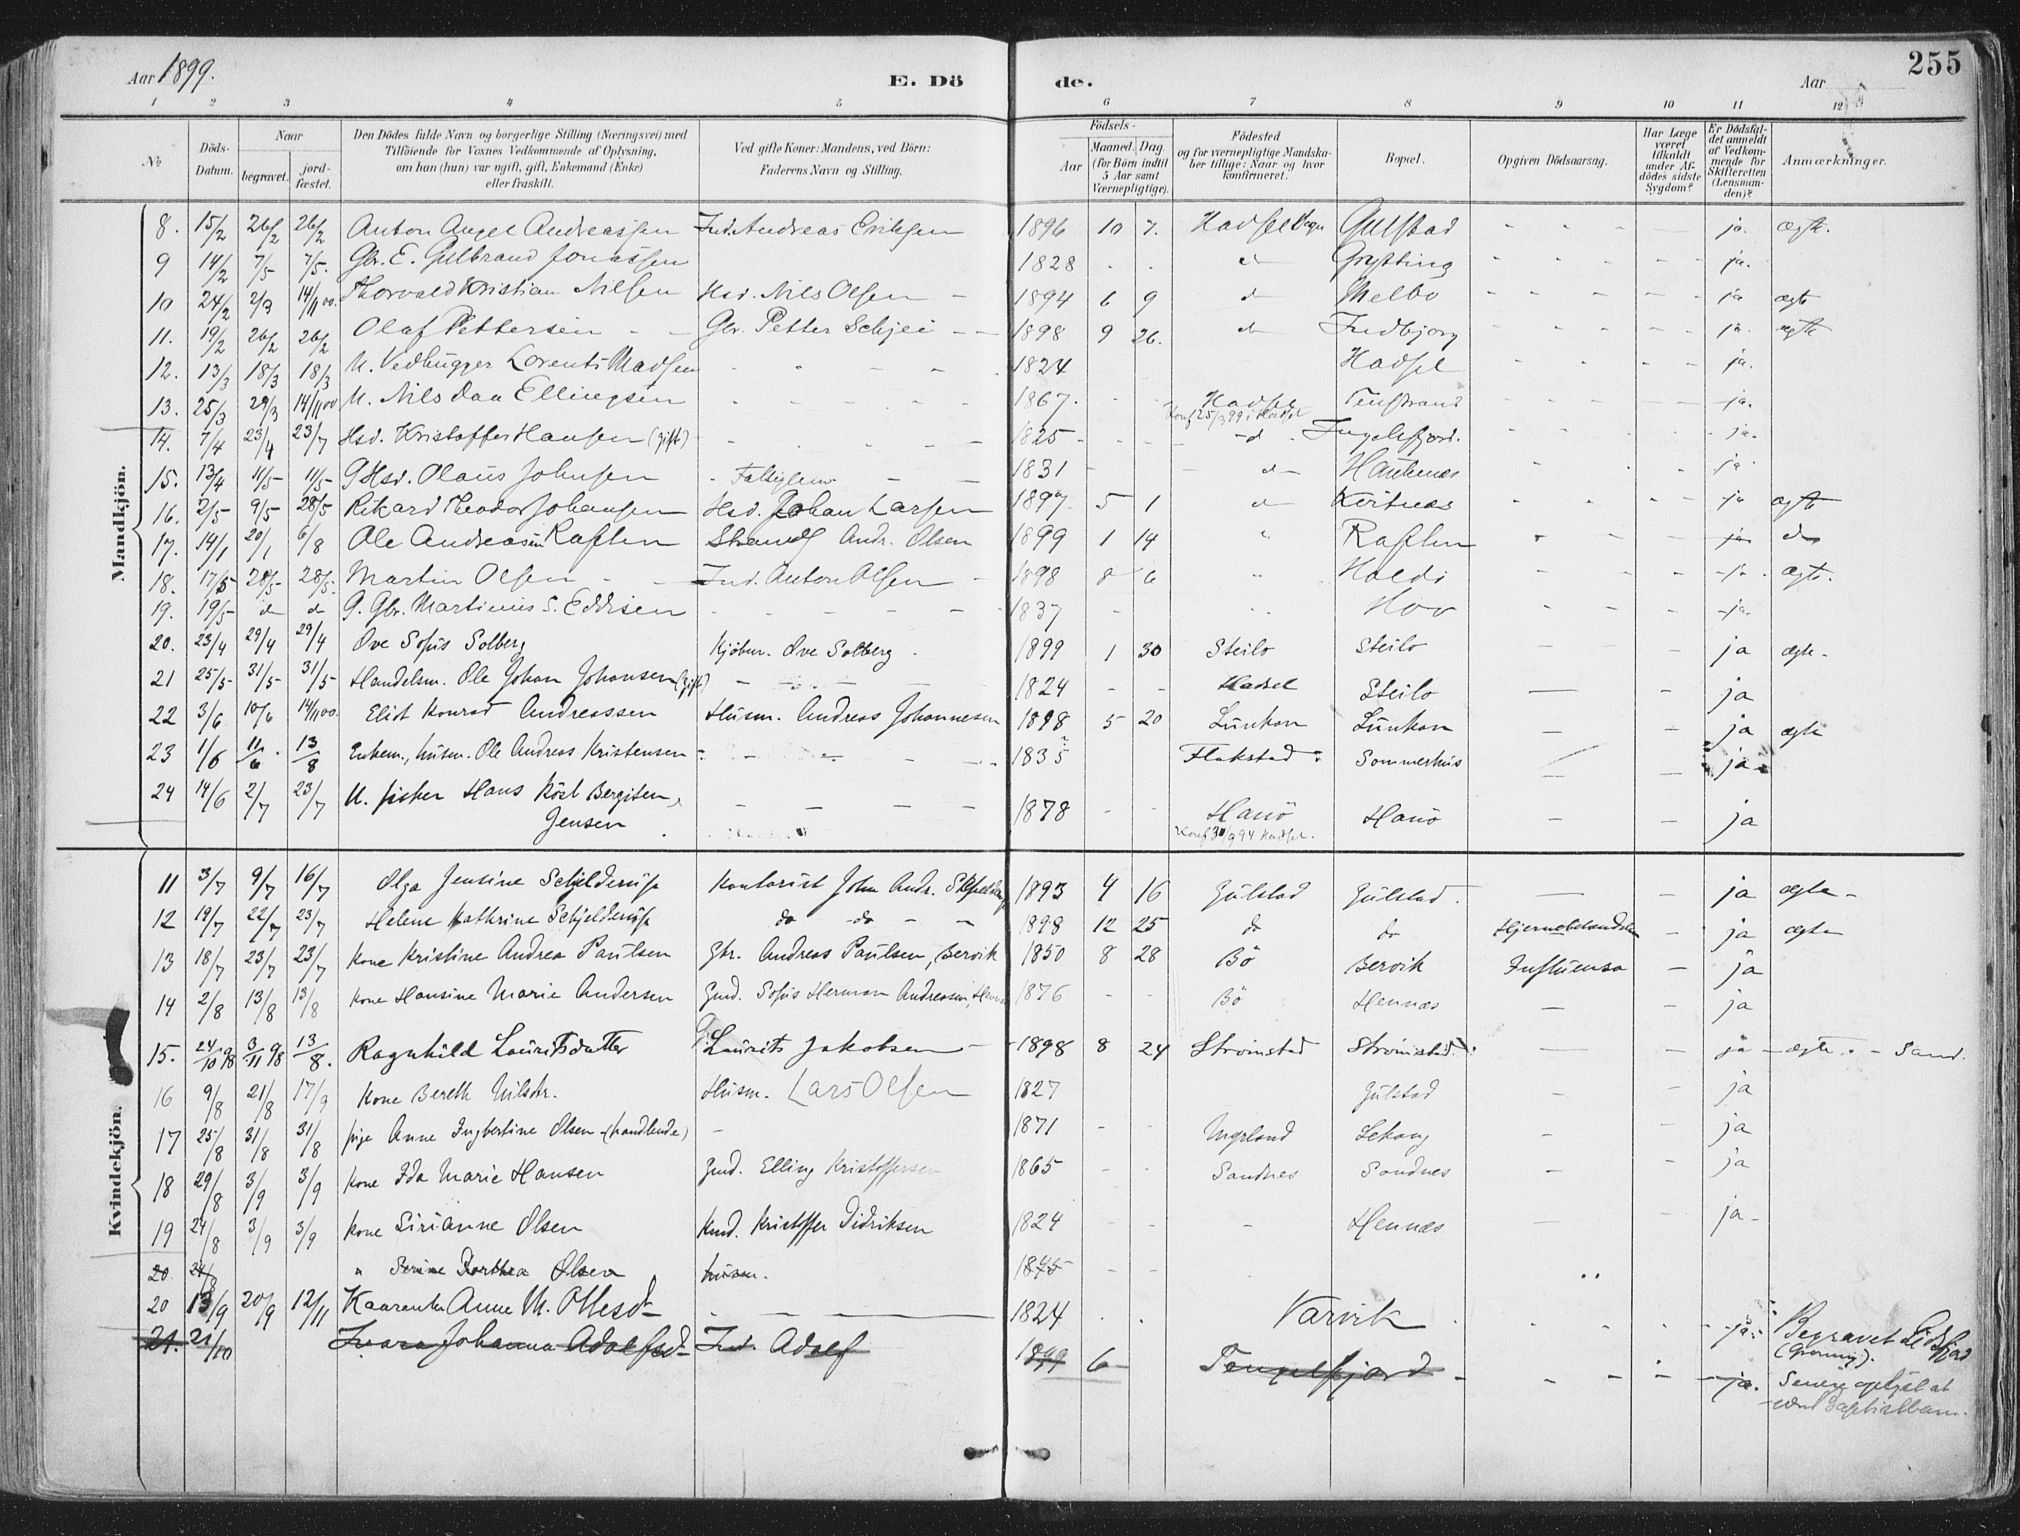 Aar 1899.
E. Dö
de.
Aar
255
1 2 3 4 5 6 7 8 9 10 11 12
No
Döds-Datum.
Naar
begravet.
jord-fæstet.
Den Dödes fulde Navn og borgerlige Stilling (Næringsvei) med
Tilföiende for Voxnes Vedkommende af Oplysning,
om han (hun) var ugift, gift, Enkemand (Enke)
eller fraskilt.
Ved gifte Koner: Mandens, ved Börn:
Faderens Navn og Stilling.
Födsels-
Aar
Maaned. Dag.
(for Börn indtil
5 Aar samt
Værnepligtige).
Födested
og for værnepligtige Mandska-
ber tillige: Naar og hvor
konfirmeret.
Bopæl.
Opgiven Dödsaarsag.
Har Læge
været
tilkaldt
under Af-
dödes sidste
Sygdom?
Er Dödsfal-
det anmeldt
af Vedkom-
mende for
Skifteretten
(Lensman-
den)?
Anmærkninger.
Mandkjön.
8. 15/2 26/2 26/2 Anton Angel Andreassen Ind. Andreas Eriksen 1896 10 7. Hadsel Gulstad ja. ægte.
9 14/2 7/5 7/5. Gbr. E. Gulbrand Jonassen 1828 d Grytting ja.
10 24/2 2/3 14/11 00. Thorvald Kristian Nilsen Hsd. Nils Olsen 1894 6 9 d Melbo ja ægte
11. 19/2 26/2 26/2 Olaf Pettersen Gbr. Petter Schjei 1898 9 26. d Indbjorg ja. ægte
12. 13/3 18/3 18/3 U. Vedhugger Lorents Madsen 1824 Hadsel ja.
13. 25/3 29/3 14/11 00 U. Nils Daa Ellingsen 1867. Hadsel ja.
14. 7/4 23/4 23/7 Hsd. Kristoffer Hansen (gift) 1825 d Ingelsfjord. ja.
15. 13/4 11/5 11/5 G Hsd. Olaus Johnsen Fattiglem 1831 d Haukenæs ja
16. 2/5 9/5 28/5 Rikard Theodor Johansen Hsd. Johan Larsen 1897 5 1 d ja ægte
17. 14/1 20/1 6/8 Ole Andreassen Raften Strands. Andr. Olsen 1899 1 14 " Raften ja d
18. 17/5 28/5 28/5. Martin Olsen Ind. Anton Olsen 1898 8 6 " Holdö ja ægte.
19. 19/5 d d G. Gbr. Martinus S. Eddisen 1837 Hov ja.
20. 23/4 29/4 29/4 Ove Sofus Solberg Kjöbm. Ove Solberg 1899 1 30 Steilo Steilo ja ægte
21 25/5 31/5 31/5 Handelsm. Ole Johan Johansen (gift) 1824 Hadsel Steilo ja
22 3/6 10/6 14/11 00. Eliot Konrad Andreassen Husm. Andreas Johannesen 1898 5 20 Lunkan Lunkan ja ægte
23 1/6 11/6 13/8 Enkem., husm. Ole Andreas Kristensen 1835 Flakstad Sommerhus ja
24 14/6 2/7 23/7 U. fisker Hans Köst Bergitsen Jensen 1878 Hanö Hanö ja
Kvindekjön.
11 3/7 9/7 16/7 Olga Jensine Schjelderup Kontorist John Andr. 1893 4 16 Gulstad Gulstad. ja ægte
12 19/7 22/7 23/7 Helene Kathrine Schjelderup do do 1898 12 25 do do ja ægte
13 18/7 23/7 23/7 Kone Kristine Andrea Paulsen Gbr. Andreas Paulsen, Bervik 1850 8 28 Bö Bervik Influensa ja
14 2/8 13/8 13/8 Kone Hansine Marie Andersen Gmd. Sofus Herman Andreasen, 1876 Bö Hennæs ja
15. 24/10 98 3/11 98 13/8. Ragnhild Lauritsdatter Laurits Jakobsen 1898 8 24 Strömstad Strömstad. ja ægte Sand.
16 9/8 21/8 17/9 Kone Bereth Nilsdtr. Husm. Lars Olsen 1827 Gulstad ja
17 25/8 31/8 31/8 pige Anne Ingbertine Olsen (handlende) 1871 Myrland ja
18 29/8 3/9 3/9 Kone Ida Marie Hansen Gmd. Elling Kristoffersen 1865 Sandnes Sandnes ja
19 24/8 3/9 3/9 Kone Sirianne Olsen Kmd. Kristoffer Didriksen 1824 Hennæs ja
20. 24/8 " Serine Dorthea Olsen husm. 1845
20 13/9 20/9 12/11 Kaarenke Anne M. Ottesd. 1824 Varvik ja. Begravet Eidsfjord
21. 21/10 Johanna Adolfsd. Ind. Adolf 1899 6 Tengelfjord ja. Senere oplyst at